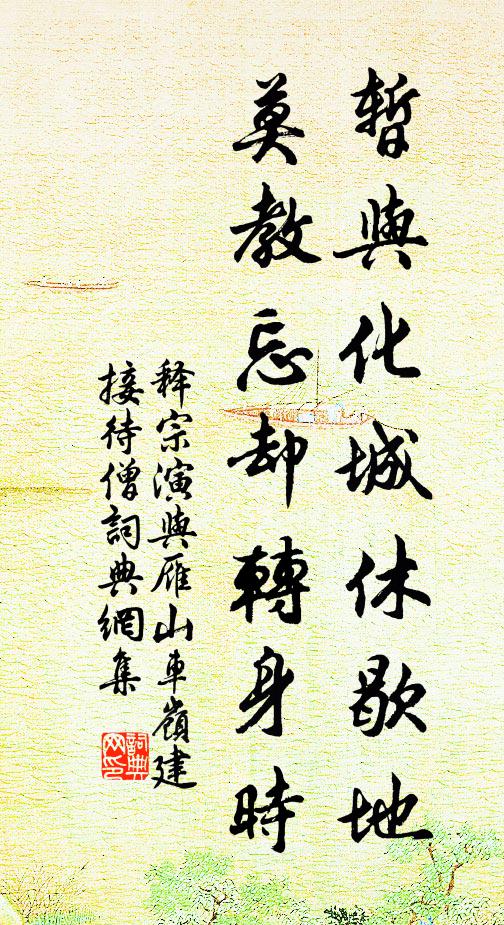 暫與化城休歇地
莫教忘却轉身時
释宗演與雁山車嶺建
接待僧詞典網集
詞典网印